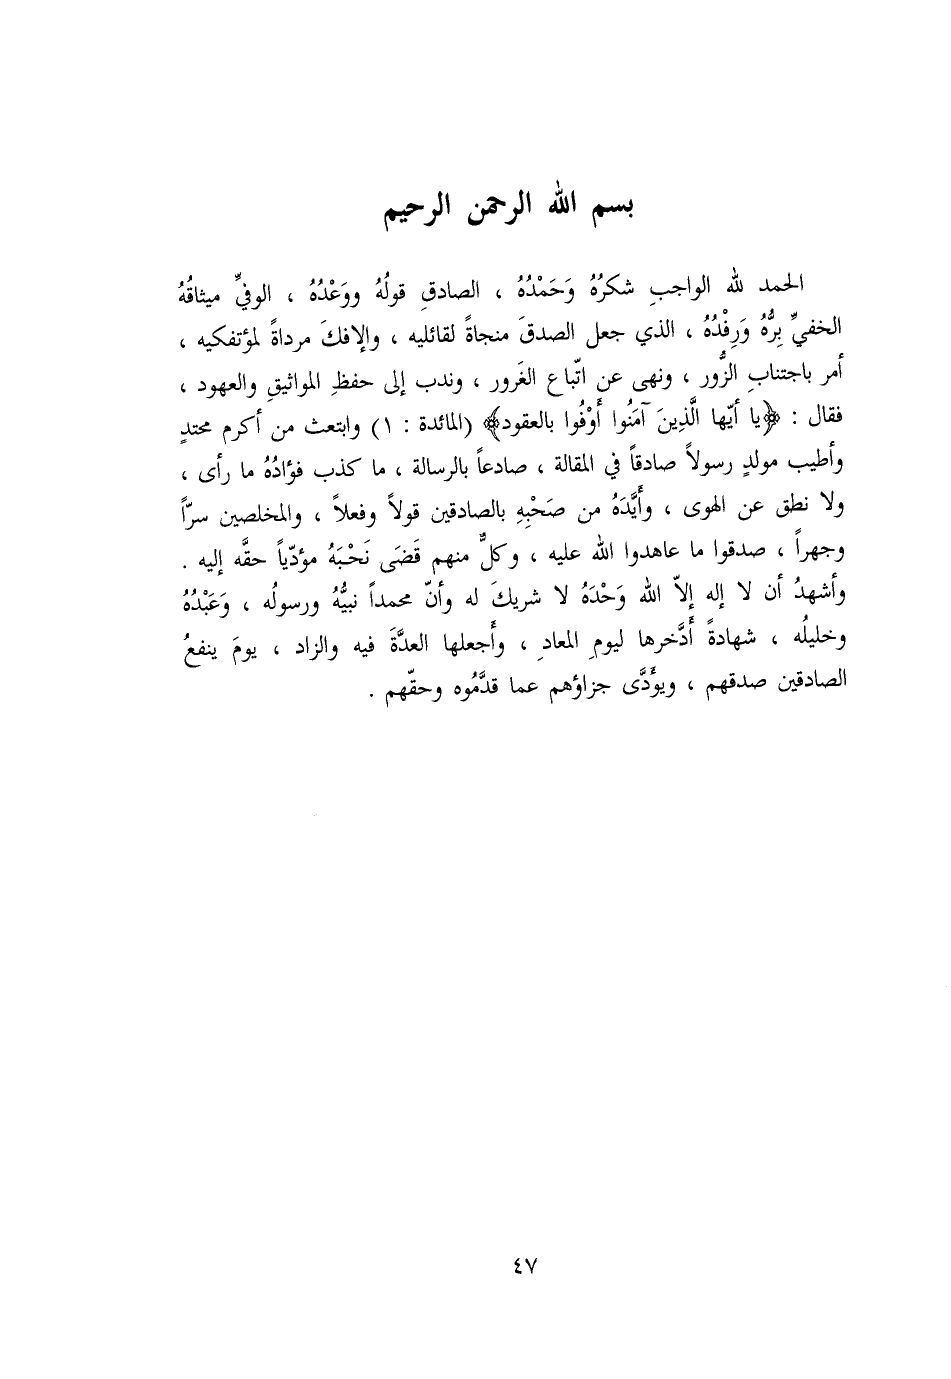 بسم الله الرحمن الرحيم
الحمد لله الواجبِ شكرُهُ وَحَمْدُهُ ، الصادقِ قولُهُ ووَعْدُهُ ، الوفيِّ ميثاقُهُ
الخفيِّ بِرُّهُ وَرِفْدُهُ ، الذي جعل الصدقَ منجاةً لقائليه ، والإفكَ مرداةً لمؤتفكيه ،
أمر باجتنابِ الزُّور ، ونهى عن اتّباع الغَرور ، وندب إلى حفظِ المواثيقِ والعهود ،
فقال : ﴿يا أيّها الَّذِينَ آمَنُوا أَوْفُوا بالعقود﴾ (المائدة : ١) وابتعث من أكرم محتدٍ
وأطيب مولدٍ رسولاً صادقاً في المقالة ، صادعاً بالرسالة ، ما كذب فؤادُهُ ما رأى ،
ولا نطق عن الهوى ، وأَيَّدَهُ من صَحْبِهِ بالصادقين قولاً وفعلاً ، والمخلصين سرّاً
وجهراً ، صدقوا ما عاهدوا الله عليه ، وكلٌّ منهم قَضَى نَحْبَهُ مؤدّياً حقَّه إليه .
وأشهدُ أن لا إله إلاّ الله وَحْدَهُ لا شريكَ له وأنّ محمداً نبيُّهُ ورسولُه ، وَعَبْدُهُ
وخليلُه ، شهادةً أَدَّخرها ليومِ المعادِ ، وأَجعلها العدَّةَ فيه والزاد ، يومَ ينفعُ
الصادقين صدقهم ، ويؤَدَّى جزاؤهم عما قدَّمُوه وحقّهم .
٤٧